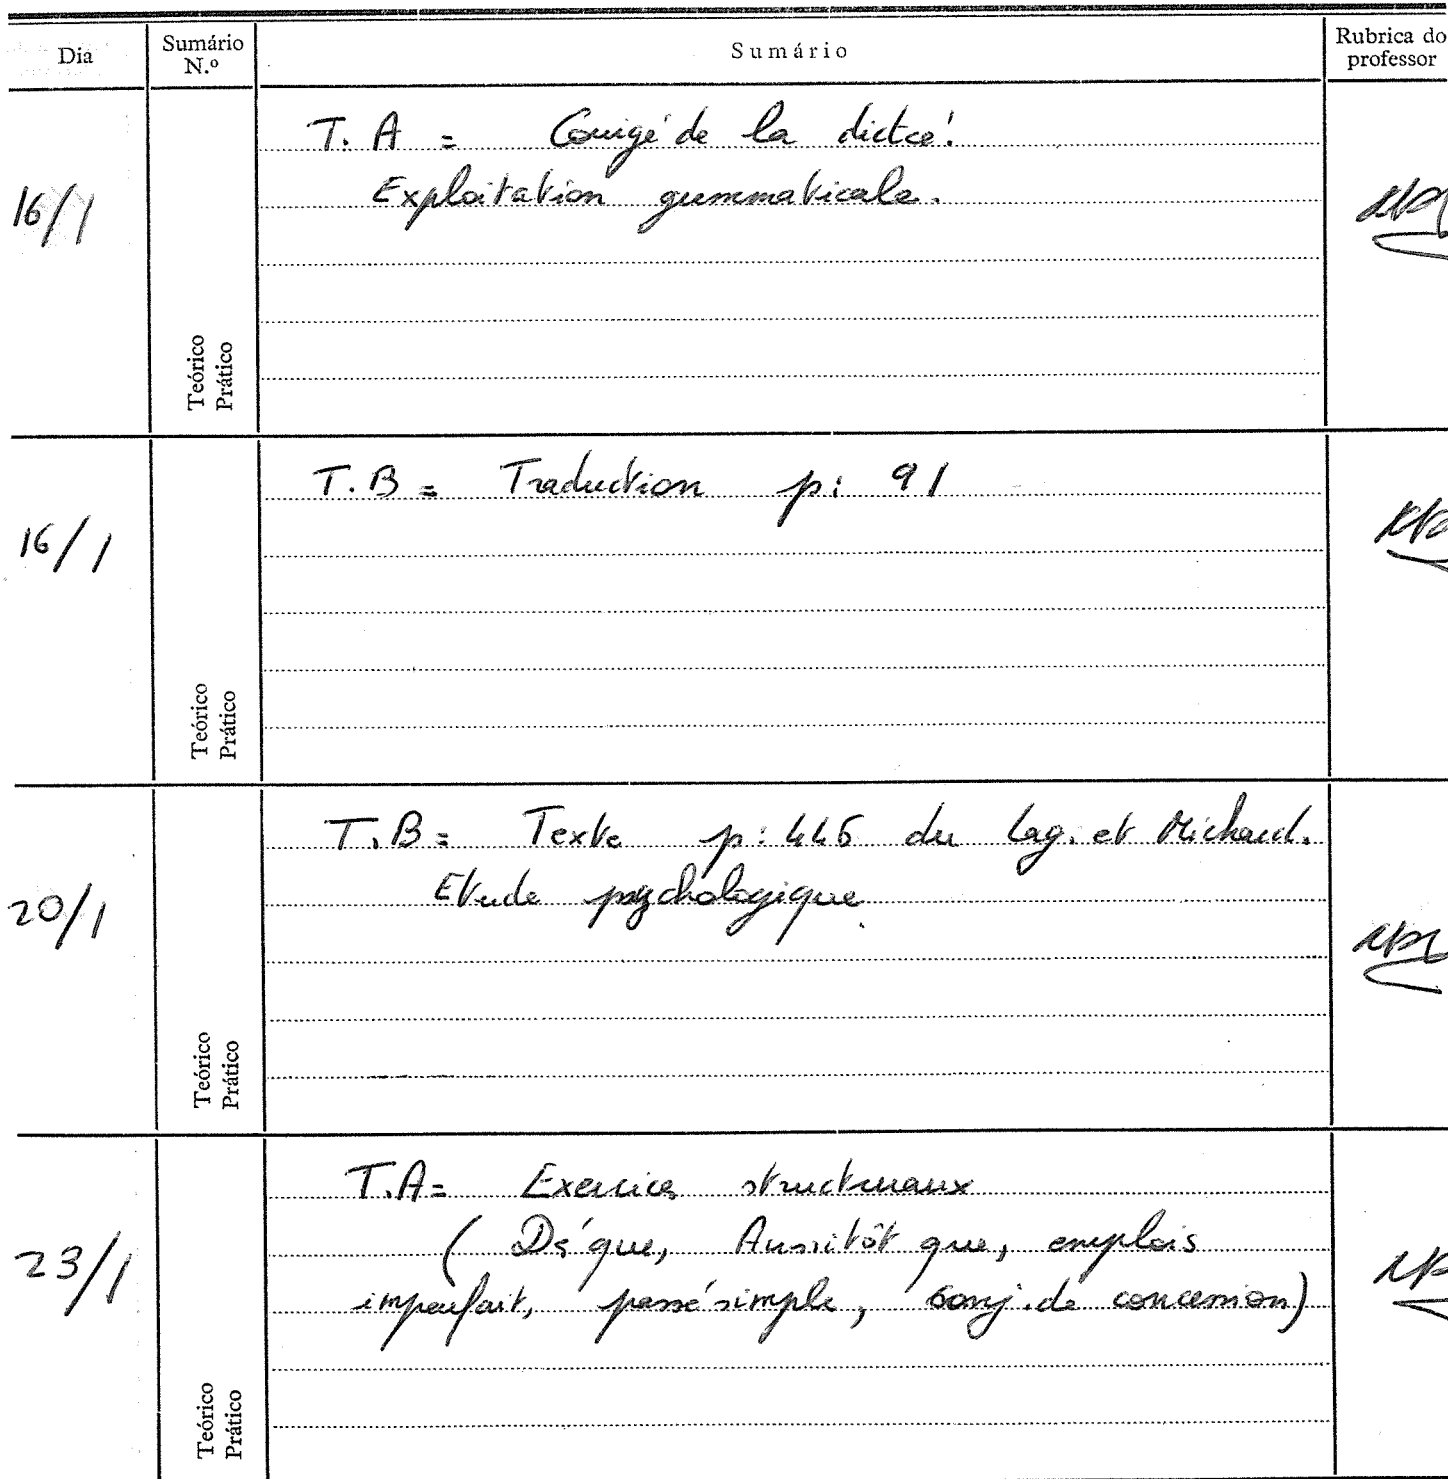 Dia
Sumário N.º
Sumário
Rubrica do professor
16/1
T. A = Corrigé de la dictée.
Exploitation grammaticale.
Teórico
Prático
16/1
T. B = Traduction p: 91
Teórico
Prático
20/1
T. B = Texte p: 445 du Lag. et Michaud.
Etude psychologique.
Teórico
Prático
23/1
T.A = Exercices structuraux
( Dès que, Aussitôt que, emplois
imparfait, passé simple, conj. de concession)
Teórico
Prático